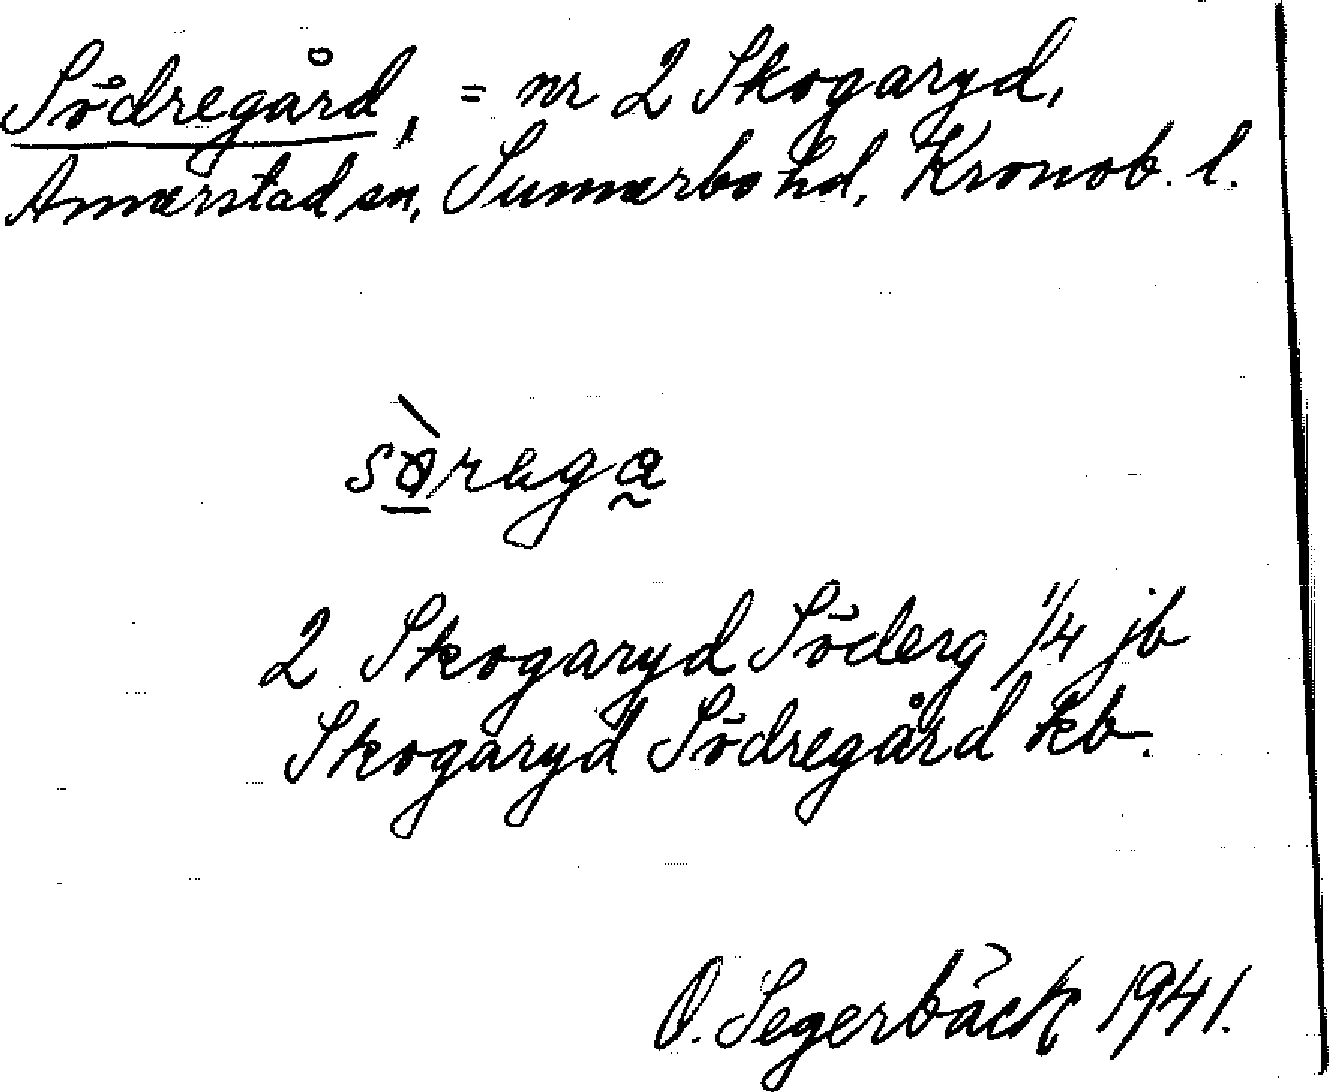 Södregård, = nr 2 Skogaryd,
Annerstad sn, Sunnerbo hd, Kronob. l.
sòrega
2 Skogaryd Söderg 1/4 jb
Skogaryd Södregård kb.
O. Segerbäck 1941.